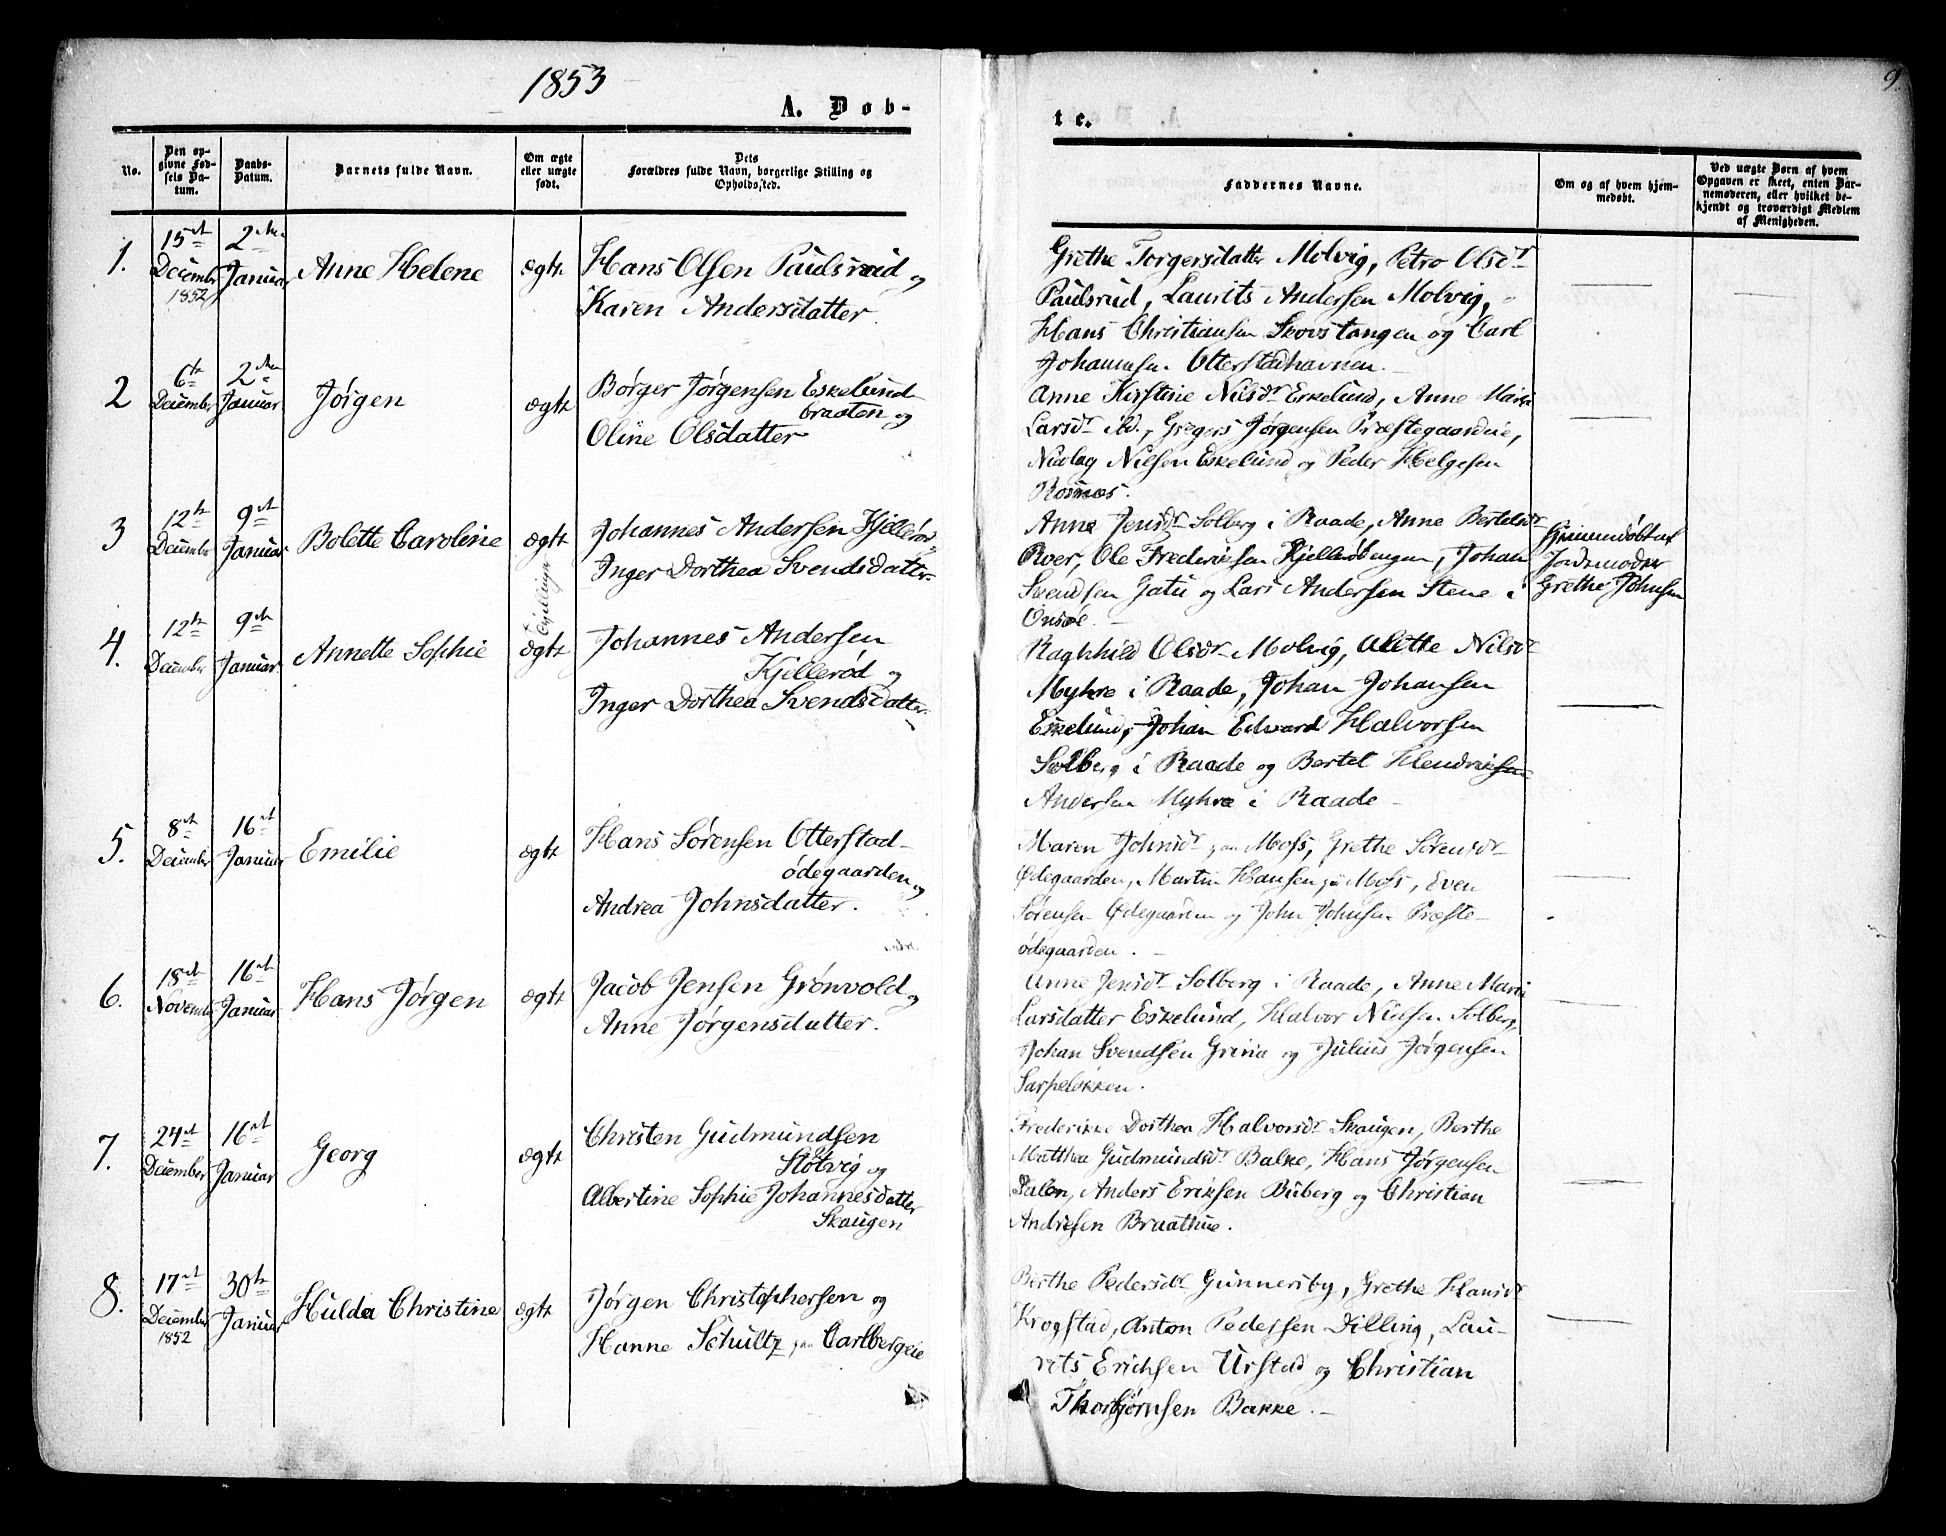 1853
9.
A. Døb-
te.
No.
Den op-
givne Fød-
sels Da-
tum.
Daabs-
Datum.
Barnets fulde Navn.
Om ægte
eller uægte
født.
Dets
Forældres fulde Navn, borgerlige Stilling og
Opholdssted.
Faddernes Navne.
Om og af hvem hjem-
medøbt.
Ved uægte Børn af hvem
Opgaven er skeet, enten Bar-
nemoderen, eller hvilket be-
kjendt og troværdigt Medlem
af Menigheden.
1.
15de
December
1852
2den
Januar
Anne Helene
ægte
Hans Olsen Paulsrud og
Karen Andersdatter
Grethe Torgersdatter Molvig, Petro Olsdr
Paulsrud, Laurits Andersen Molvig,
Hans Christiansen Skovstangen og Carl
Johannsen Otterstadhavnen.
2
6te
December
2den
Januar
Jørgen
ægte
Børger Jørgensen Eskelund-
braaten og
Oline Olsdatter
Anne Kirstine Nilsdr Eskelund, Anne Marie
Larsdr ibd., Gregers Jørgensen Præstegaardeie,
Nicolay Nilsen Eskelund og Peder Helgesen
Rosnæs.
3
12te
December
9de
Januar
Bolette Caroline
ægte
Johannes Andersen Kjillerød
Inger Dorthea Svendsdatter
Anne Jensdr Solberg i Raade, Anne Bertelsdr
Roer, Ole Frederiksen Kjillerødengen, Johan
Svendsen og Lars Andersen Stene i
Onsøe.
Hjemmedøbt af
Jordemoder
Grethe Johnsen
Tvillinger
4.
12te
December
9de
Januar
Annette Sophie
ægte
Johannes Andersen
Kjillerød og
Inger Dorthea Svendsdatter
Ragnhild Olsdr Molvig, Olette Nilsdr
Myhre i Raade, Johan Johansen
Eskelund, Johan Edvard Halvorsen
Solberg i Raade og Bertel Hendriksen
Andersen Myhre i Raade
5.
8de
December
16de
Januar
Emilie
ægte
Hans Sørensen Otterstad-
ødegaarden og
Andrea Johnsdatter.
Maren Johnsdr paa Moss, Grethe Sørensdr
Ødegaarden, Martin Hansen paa Moss, Even
Sørensen Ødegaarden og John Johnsen Præste-
ødegaarden.
6.
18de
November
16de
Januar
Hans Jørgen
ægte
Jacob Jensen Grønvold og
Anne Jørgensdatter.
Anne Jensdr Solberg i Raade, Anne Marie
Larsdatter Eskelund, Halvor Nielsen Solberg,
Johan Svendsen Grimia og Julius Jørgensen
Sarpeløkken.
7.
24de
December
16de
Januar
Georg
ægte
Christen Gudmundsen
Støtvig og
Albertine Sophie Johannesdatter
Skaugen
Frederikke Dorthea Halvorsdr Skaugen, Berthe
Matthea Gudmundsdr Balke, Hans Jørgensen
Dalen, Anders Eriksen Buberg og Christian
Andresen Braathne.
8.
17de
December
1852
30te
Januar
Hulda Christine
ægte
Jørgen Christophersen og
Hanne Schultz paa Carlbergeie
Berthe Pedersdr Gunnersby, Grethe Hansdr
Krogstad, Anton Pedersen Dilling, Lau-
rits Erichsen Urstad og Christian
Thorbjørnsen Bakke.